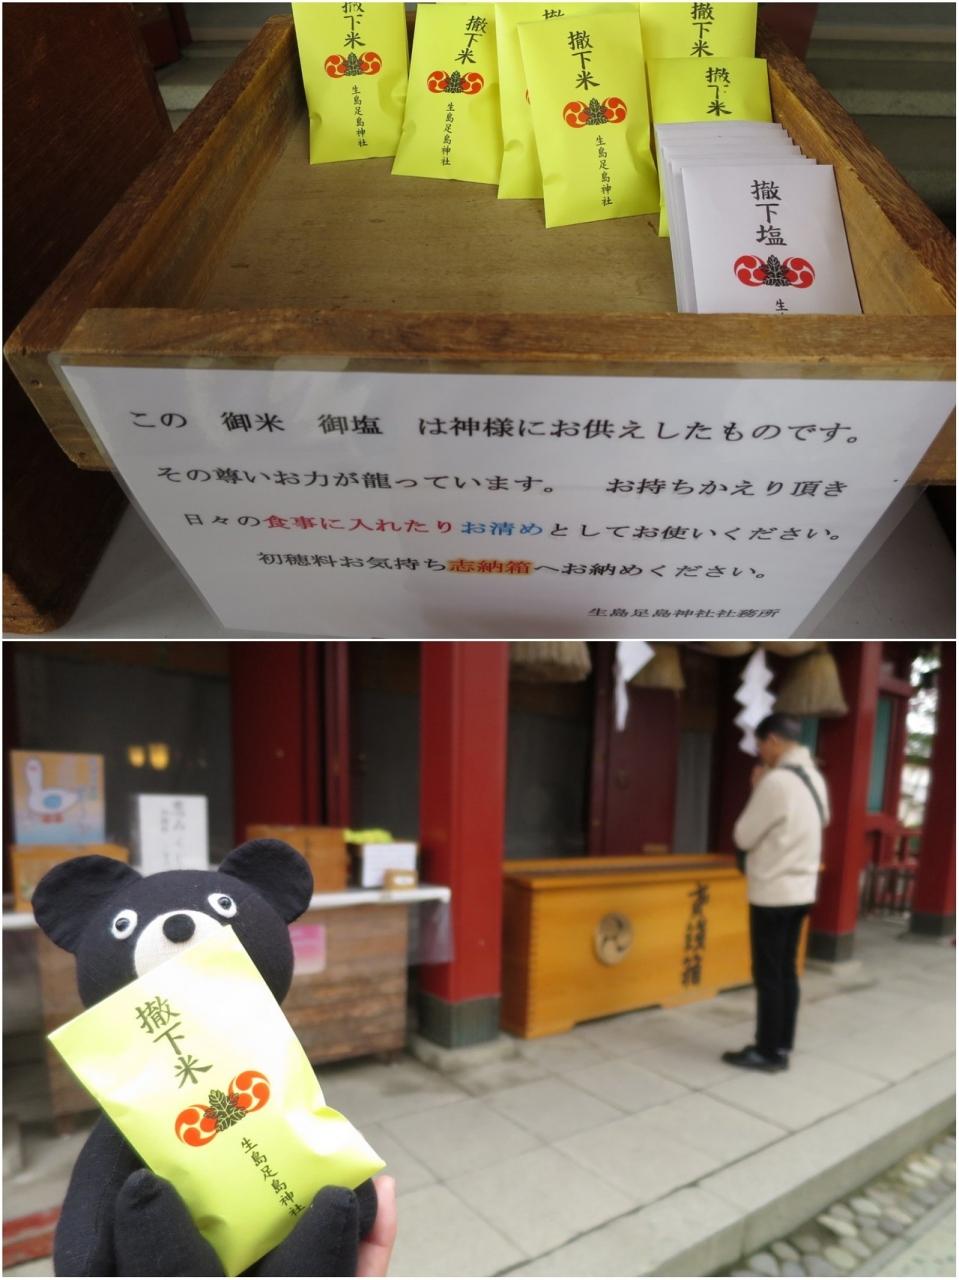 撤下米
生島足島神社
撤下米
生島足島神社
撤下米
生島足島神社
撤下米
撤下米
撤下塩
生
この 御米 御塩 は神様にお供えしたものです。
その尊いお力が龍っています。 お持ちかえり頂き
日々の食事に入れたりお清めとしてお使いください。
初穂料お気持ち志納箱へお納めください。
生島足島神社社務所
撤下米
生島足島神社